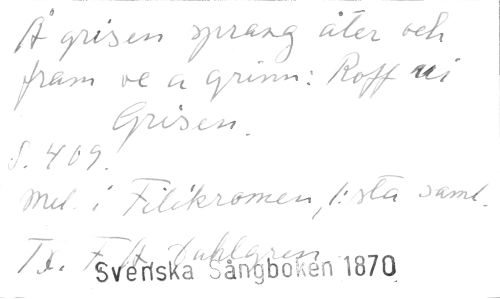 Å grisen sprang åter och
fram ve a grinn: Roff ui
Grisen.
S. 409.
Mel. i Filikromen, 1:sta saml.
Tx. F. A. Dahlgren
Svenska Sångboken 1870